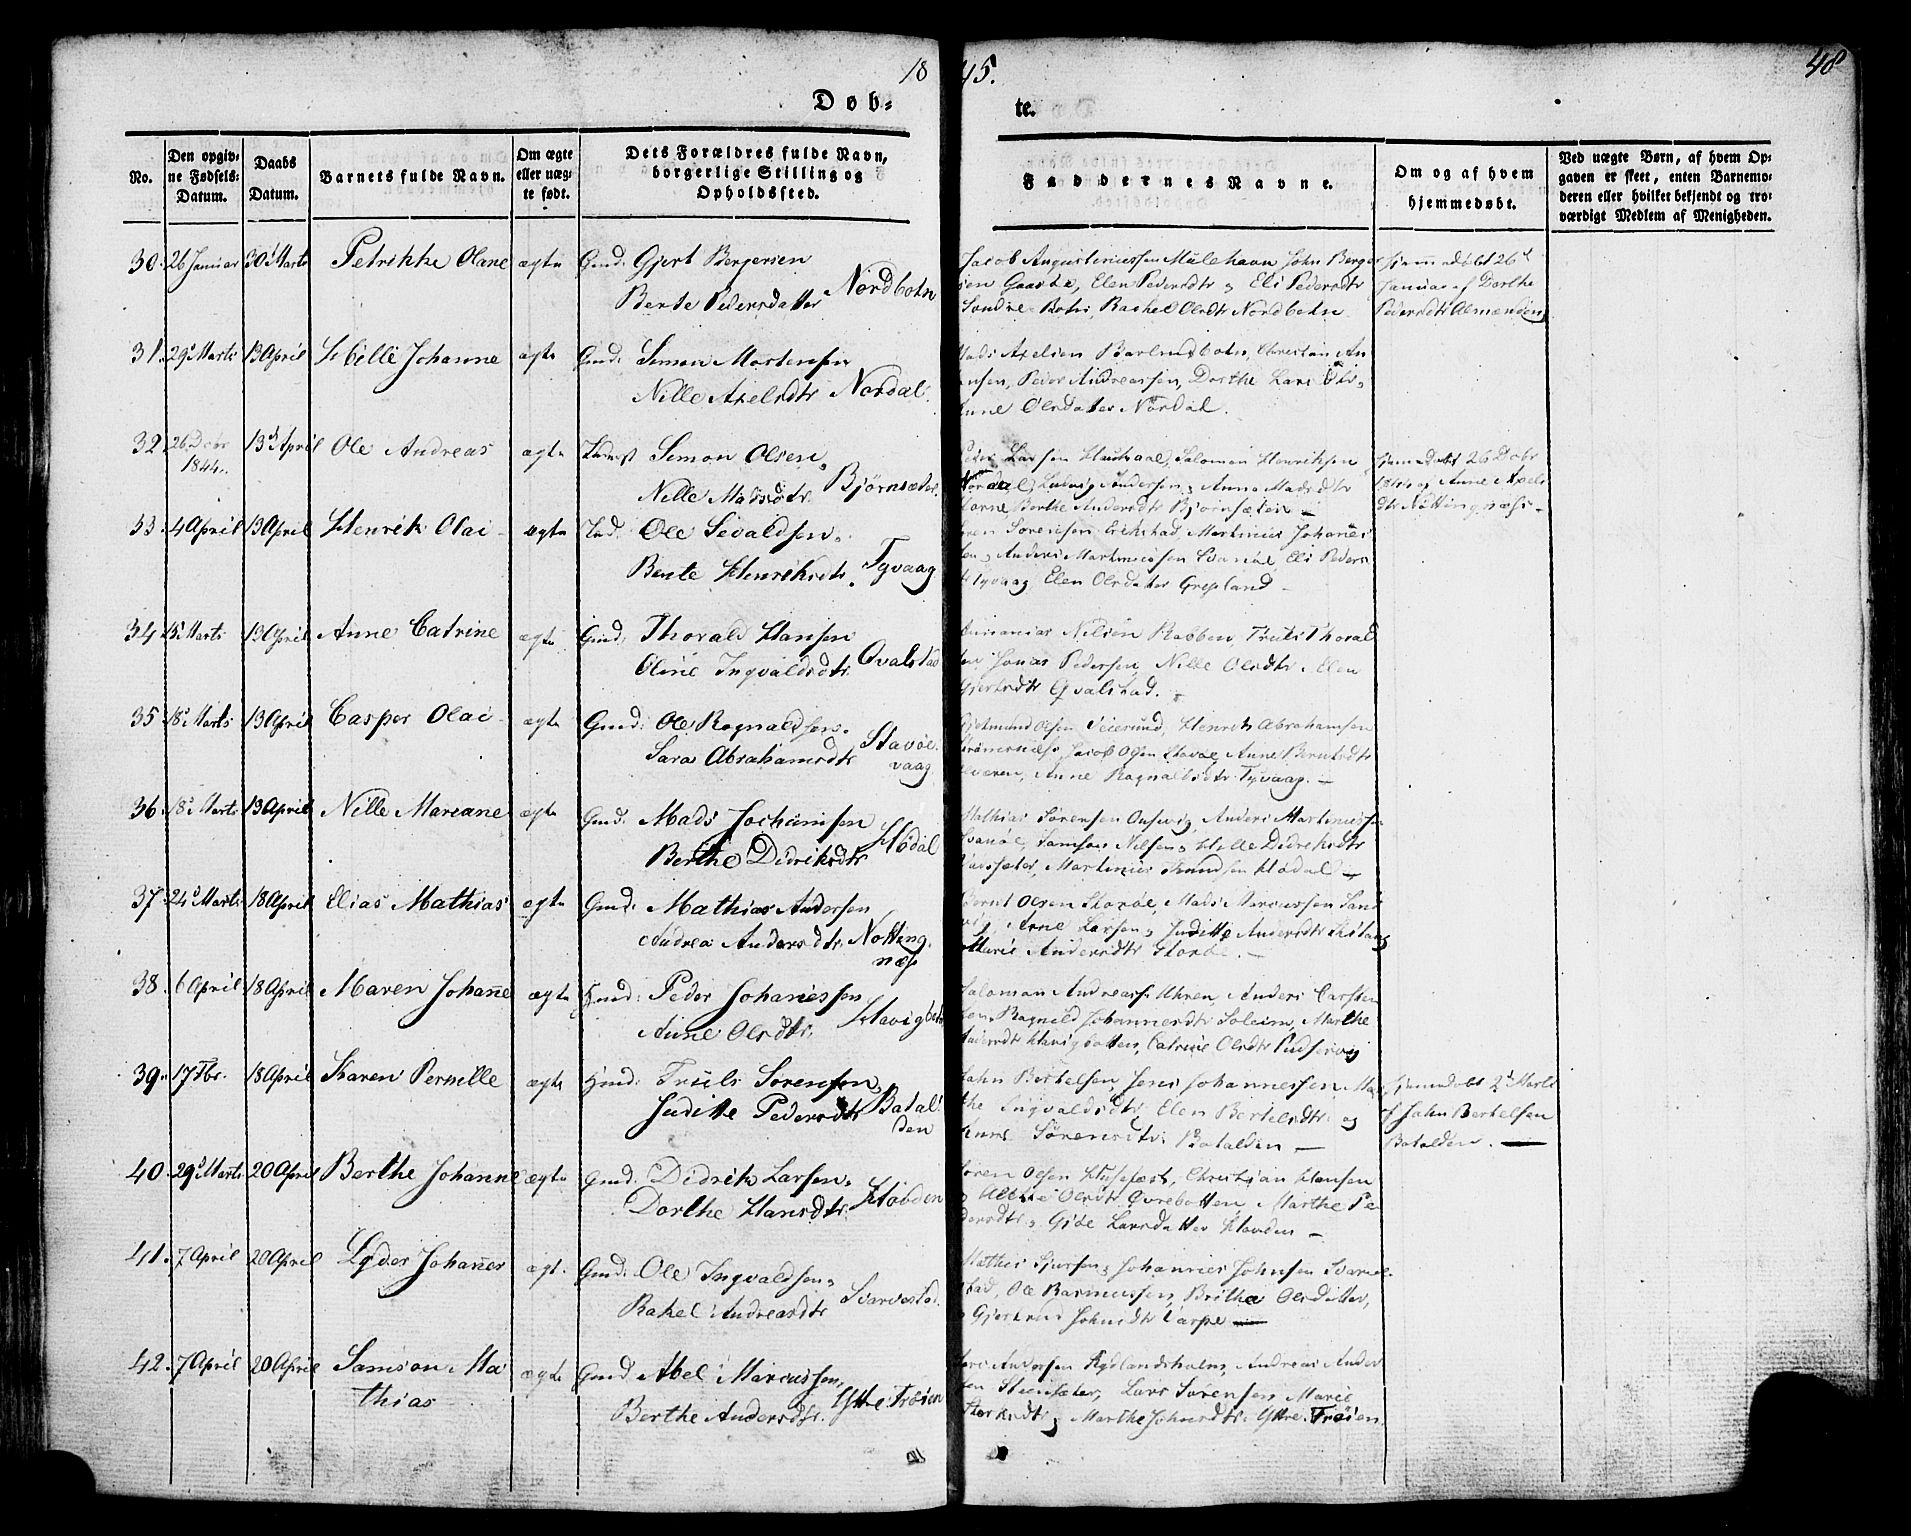 1845.
48
Døbte.
No.
Den opgivne Fødsels-Datum.
Daabs Datum.
Barnets fulde Navn.
Om ægte eller uægte født.
Dets Forældres fulde Navn, borgerlige Stilling og Opholdssted.
Faddernes Navne.
Om og af hvem hjemmedøbt.
Ved uægte Børn, af hvem Opgaven er skeet, enten Barnemoderen eller hvilket bekjendt og troværdigt Medlem af Menigheden.
30. 26 Januar 30 Marts Petrikke Olane ægte Gmd: Gjert Bergersen
Berte Pedersdatter Nordbotn
Jacob Augustinussen Mulehavn John Berger
sen Gaasøe, Elen Pedersdtr og Eli Pedersdtr
Søndre Botn, Rachel Olsdtr Nordbotn
hjemmedøbt 26d
Januar af Dorthe
Pedersdtr Almenden
31. 29d Marts 13 April Sibille Johanne ægte Gmd: Simon Mortensen
Nille Axelsdtr Nordal.
Mads Axelsen Barlinsbotn, Christian
Peder Andreassen, Dorthe Lars Dtr,
Anne Olsdatter Nordal.
32 26 Dcbr 1844. 13d April Ole Andreas ægte Simon Olsen
Nille Madsdtr. Bjørnsæter.
Peder Larsen Salomon Henriksen
Nordal, Ludvig Andersen, Anne Madsdtr
Berthe Andersdtr Bjørnsæter
hjemmedøbt 26 Dcbr
1844 af Anne Axels
dtr Nøttingnæss
33. 4 April 13 April Henrik Olai ægte Ole Sivaldsen
Bente Henriksdtr. Tyvaag
Søren Sørensen Erikstad, Martinus Johannes
sen, Anders Martinussen Svanøe, Eli Peders
dtr Tyvaag, Elen Olsdatter Grepland
34 15 Marts 13 April Anne Catrine ægte Gmd: Thorald Hansen
Oline Ingvaldsdtr. Qvalstad
Annanias Nilsen Rabben, Truls Thorald
sen Jonas Pedersen, Nille Olsdtr. Elen
Gjertsdtr Qvalstad.
35 18 Marts 13 April Casper Olai ægte Gmd: Ole Rognaldsen
Sara Abrahamsdtr Stavøe
vaag
Gjetmund Olsen Veiesund, Henrik Abrahamsen
Strømsnæss, Jacob Olsen Stavøe, Anne Berntsdtr
Anne Ragnaldsdtr Tyvaag.
36. 18 Marts 13 April Nille Mariane ægte Gmd: Mads Jochimsen
Berthe Didriksdtr Hødal
Mathias Sørensen Anders Martinussen
Svanøe, Samson Nilsen, Didriksdtr
Martinus Knudsen Hødal
37. 24d Marts 18 April Elias Mathias ægte Gmd: Mathias Andersen
Andrea Andersdtr. Notting
næss
Bernt Olsen Storøe, Mads Marcussen Sand
vig, Arne Larsen, Juditte Andersdtr
Marie Andersdtr Storøe.
38. 6 April 18 April Maren Johanne ægte Gmd: Peder Johanessen
Anne Olsdtr. Havigbot
Salomon Andreass. Uhren, Anders Carsten
sen, Ragnild Johannesdtr Soleim, Marthe
Andersdtr Havigbotten, Catrine Olsdtr
39. 17 Fbr. 18 April Karen Pernille ægte Gmd: Truls Sørensen
Juditte Pedersdtr Batal
den
John Bertelsen Jens Johannessen Mar
the Ingvaldsdtr, Elen Bertelsdtr: og
Anne Sørensdtr: Batalden
hjemmdøbt 2d Marts
af John Bertelsen
Batalden.
40. 29d Marts 20 April Berthe Johanne ægte Gmd: Didrik Larsen
Dorthe Hansdtr. Hovden
Søren Olsen Husefest, Christian Hansen
Olsdtr Øvrebotten, Marthe Pe
dersdtr, Gide Larsdatter Hovden
41. 7 April 20 April Lyder Johannes ægt. Gmd: Ole Ingvaldsen
Rakel Andreasdtr Svarvestad
Mathis Sjursen, Johannes Johnsen Svarve
stad, Ole Rasmussen, Brithe Olsdatter,
Gjertrud Johnsdtr Tarpe
42. 7 April 20 April Samson Ma
thias ægte Gmd: Abel Marcussen
Berthe Andersdtr. Yttre Trøien
Lars Andersen Rydlandsholm, Andreas Ander
sen Steinsæter, Lars Sørensen, Marie
Marthe Johnsdtr. Yttre Trøien